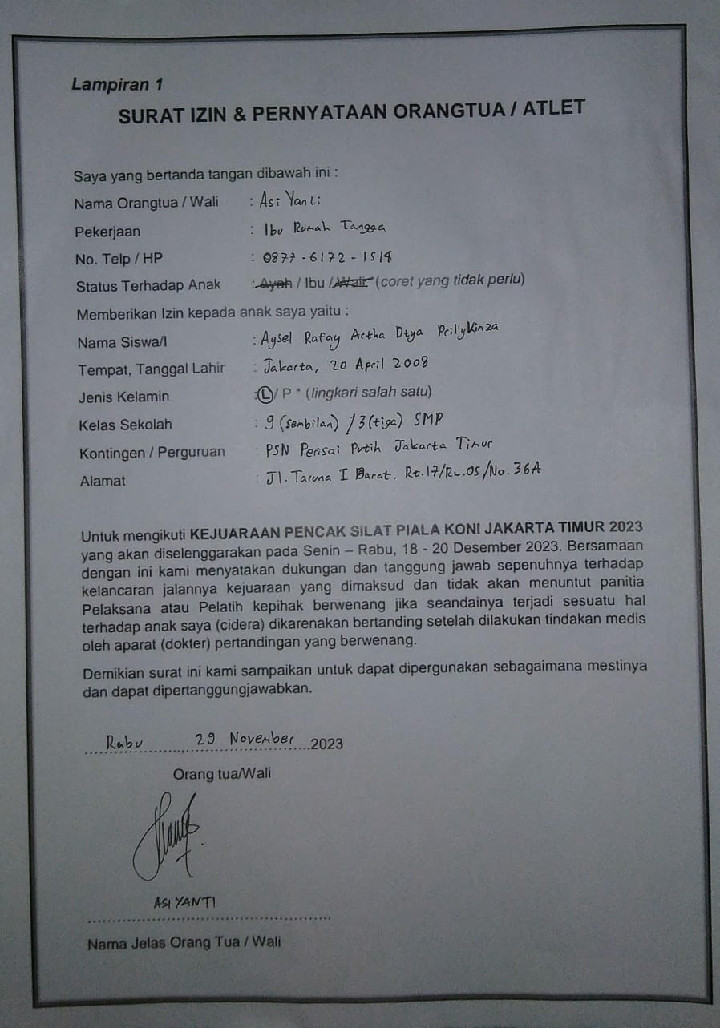 Lampiran 1
SURAT IZIN & PERNYATAAN ORANGTUA / ATLET
Saya yang bertanda tangan dibawah ini :
Nama Orangtua / Wali : Asi Yanti
Pekerjaan : Ibu Rumah Tangga
No. Telp / HP : 0877-6172-1514
Status Terhadap Anak : Ayah / Ibu / Wali* (coret yang tidak perlu)
Memberikan Izin kepada anak saya yaitu :
Nama Siswa/I : Aysel Rafay Artha Dtya
Tempat, Tanggal Lahir : Jakarta, 20 April 2008
Jenis Kelamin : L / P * (lingkari salah satu)
Kelas Sekolah : 9 (sembilan) / 3 (tiga) SMP
Kontingen / Perguruan : PSN Perisai Putih Jakarta Timur
Alamat : Jl. Taruna I Barat. Rt.17/Rw.05/No.36A
Untuk mengikuti KEJUARAAN PENCAK SILAT PIALA KONI JAKARTA TIMUR 2023
yang akan diselenggarakan pada Senin – Rabu, 18 - 20 Desember 2023. Bersamaan
dengan ini kami menyatakan dukungan dan tanggung jawab sepenuhnya terhadap
kelancaran jalannya kejuaraan yang dimaksud dan tidak akan menuntut panitia
Pelaksana atau Pelatih kepihak berwenang jika seandainya terjadi sesuatu hal
terhadap anak saya (cidera) dikarenakan bertanding setelah dilakukan tindakan medis
oleh aparat (dokter) pertandingan yang berwenang.
Demikian surat ini kami sampaikan untuk dapat dipergunakan sebagaimana mestinya
dan dapat dipertanggungjawabkan.
Rabu, 29 November 2023
Orang tua/Wali
ASI YANTI
Nama Jelas Orang Tua / Wali